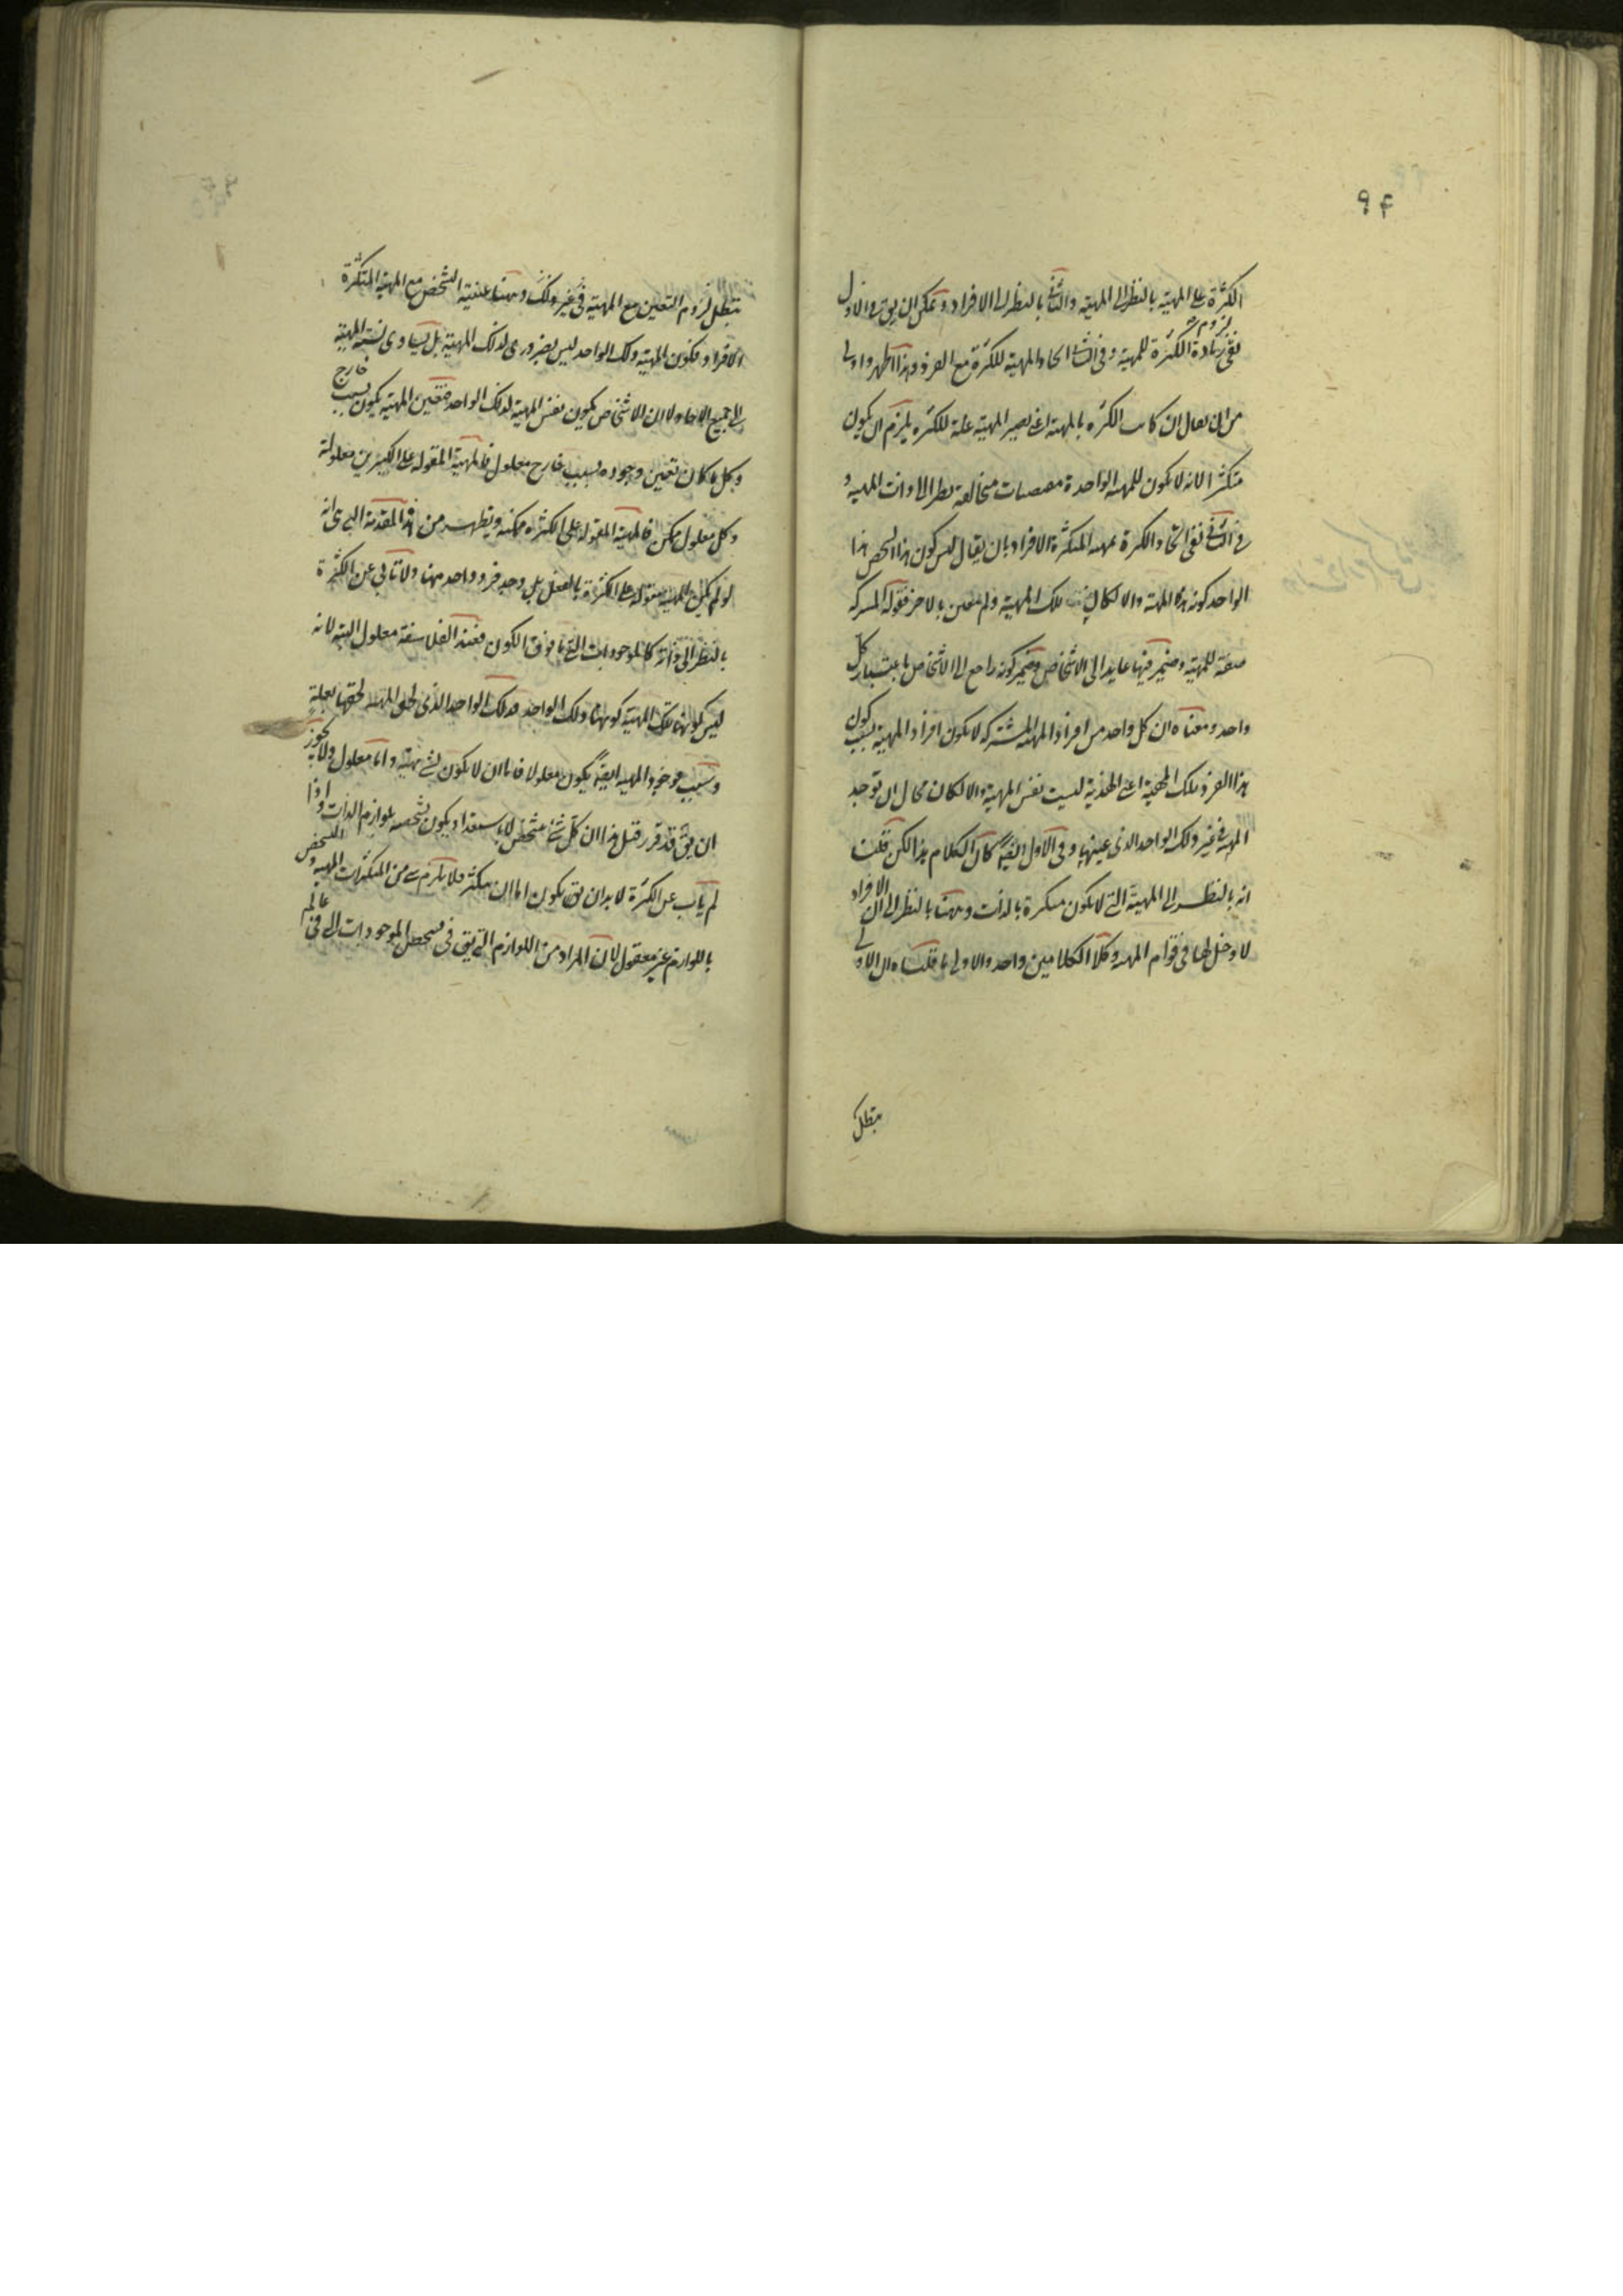 ٩٤
الكثرة على المهية بالنظر الى المهية والثانى بالنظر الى الافراد ويمكن ان يق فى الاول
لزوم
نفى زيادة الكثرة للمهية وفى الثانى اتحاد المهية للكثرة مع الفرد وهذا اظهر واولى
من ان يقال ان كانت الكثرة بالمهية اعنى يصير المهية علة للكثرة يلزم ان يكون
متكثرا لانه لا يكون للمهية الواحدة مقتضيات متخالفة نظرا الى ذات المهية و
فى الثانى نفى اتحاد الكثرة بمهية المتكثرة الافراد بان يقال ليس كون هذا الشخص هذا
الواحد كونه هذه المهية والا لكان تلك المهية ولم معين بالاخر فقوله المشتركة
صفة للمهية وضمير فيها عايد الى الاشخاص وضمير كونه راجع الى الاشخاص باعتبار كل
واحد ومعناه ان كل واحد من افراد المهية المشتركة لا يكون افراد المهية بسبب كون
هذا الفرد تلك المهية اعنى الهذية ليست نفس المهية والا لكان محال ان توجد
المهية فى غير ذلك الواحد الذى عينها وفى الاول ايضا كان الكلام هذا لكن قلت
انه بالنظر الى المهية التى لا يكون متكثرة بالذات وهنا بالنظر الى ان الافراد
لا دخل لها فى قوام المهية وكلا الكلامين واحد والاولى ما قلناه لان الاول
يبطل
يبطل لزوم التعين مع المهية فى غير ذلك وهنا عينية الشخص مع المهية المتكثرة
الافراد فكون المهية ذلك الواحد ليس بضرورى لذلك المهية بل يساوى نسبة المهية
الى جميع الاحاد لا ان الاشخاص يكون نفس المهية لذلك الواحد فتعين المهية يكون بسبب خارج
وكل ما كان تعين وجوده بسبب خارج معلول فالمهية المقولة على الكثيرين معلولة
وكل معلول ممكن فالمهية المقولة على الكثرة ممكنة ويظهر من هذه المقدمة التى انه
لو لم يكن المهية مقولة على الكثرة بالفعل بل وجد فرد واحد منها ولا تابى عن الكثرة
بالنظر الى ذاته كالموجودات التى ما فوق الكون فعند الفلاسفة معلول البتة لانه
ليس كونها تلك المهية كونها ذلك الواحد فذلك الواحد الذى لحق المهية لحقها بعلة
وسبب فوجود المهية ايضا يكون معلولا فاما ان لا يكون لشئ مهية واما معلول ولا يجوز
ان يق قد قرر قبل هذا ان كل شئ متشخص لا باستعداد يكون تشخصه بلوازم الذات واذا
لم ياب عن الكثرة لا بد ان يق يكون اما ان يتكثر فلا يلزم شئ من المتكثرات المهية والتشخص
باللوازم غير معقول لان المراد من اللوازم التى يق فى تحصل الموجودات التى فى عالم